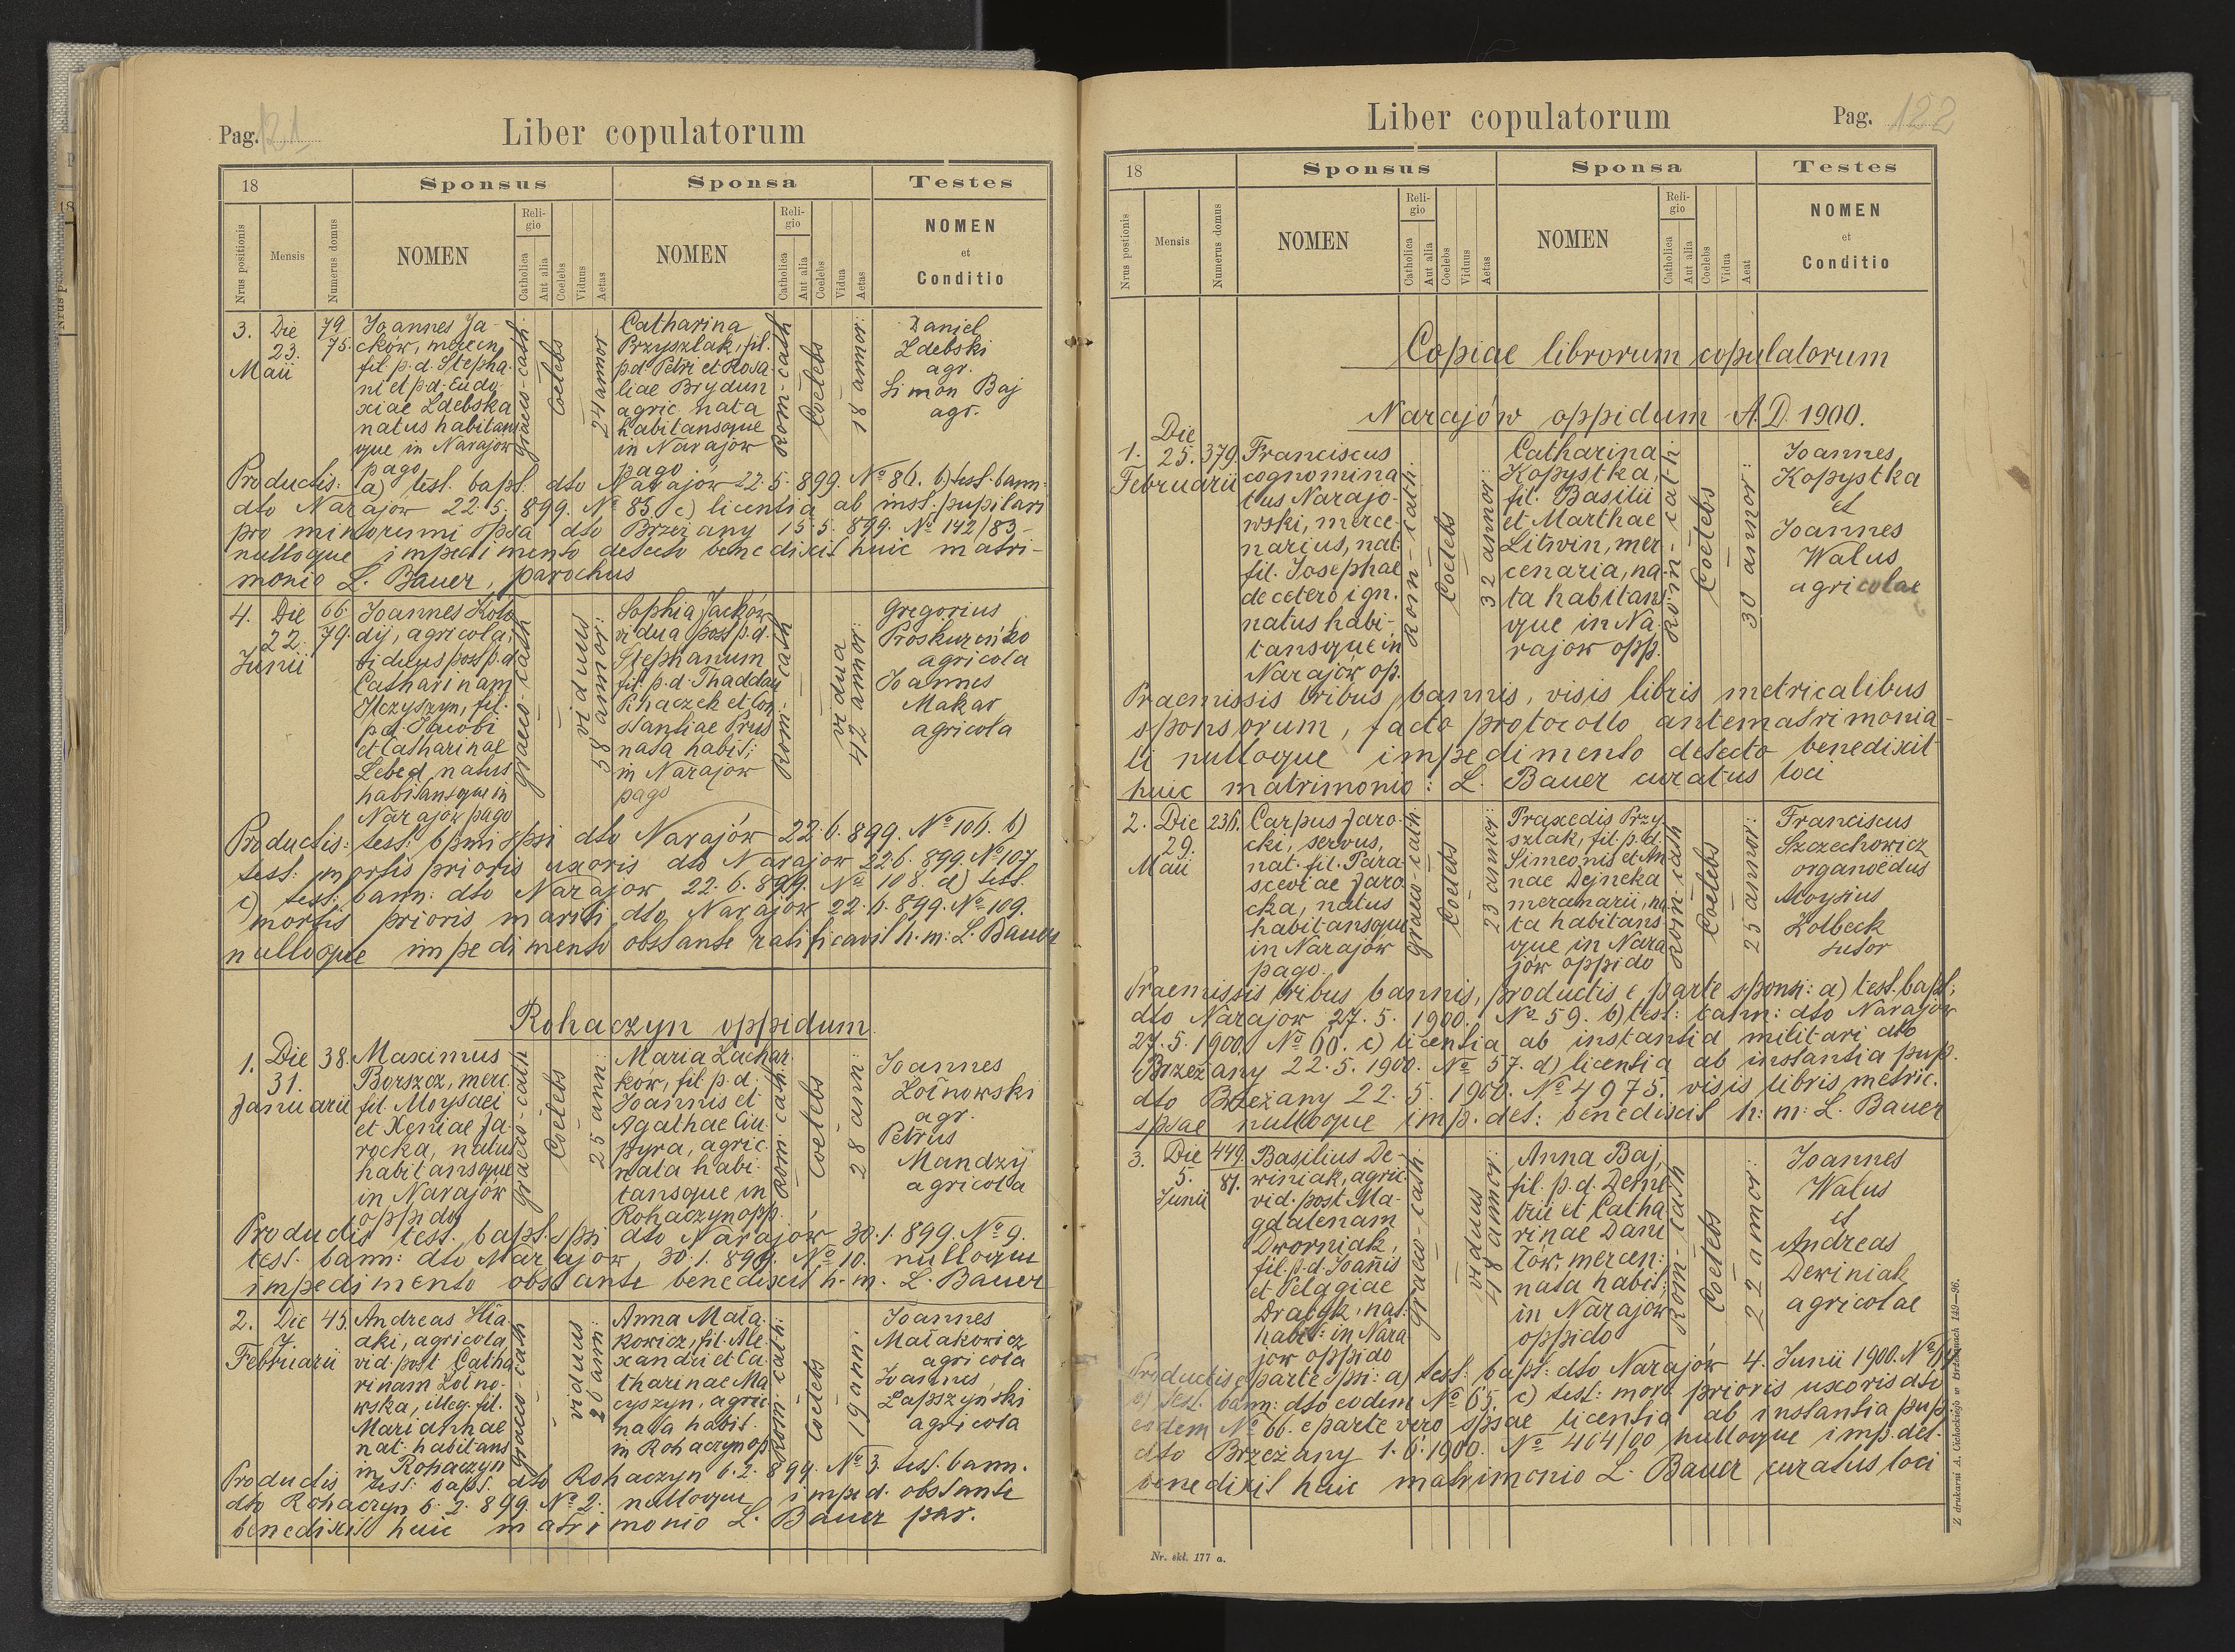 Pag. 121
Liber copulatorum
18
Sponsus
Sponsa
Testes
Nrus positionis
Mensis
Numerus domus
NOMEN
Religio
Catholica
Aut alia
Coelebs
Viduus
Aetas
NOMEN
Religio
Catholica
Aut alia
Coelebs
Vidua
Aetas
NOMEN
et
Conditio
3. Die 23. Maii
79
75.
Joannes Ja-
cków, mercen,
fil. p. d. Stepha-
ni et p.d. Eudo-
xiae Zdebska
natus habitans
que in Narajow
pago
graeco-cath
Coelebs
24 annor
Catharina
Brzyszlak, fil.
p.d Petri et Rosa-
liae Brydun
agric. nata
habitansque
in Narajow
pago
Rom-cath
Coelebs
18 annor:
Daniel
Zdebski
agr.
Simon Baj
agr.
Productis: a) test. bapt. dto Narajow 22.5.899. No 86. b) test. bann:
dto Narajow 22.5.899. No 85 c) licentia ab inst: pupilari
pro minorenni spsa dto Brzeżany 15.5.899. No 142/83-
nulloque impedimento detecto benedixit huic matri-
monio L. Bauer, parochus
4. Die 22. Junii
66.
79.
Joannes Koło
dij, agricola,
viduus post p.d
Catharinam
Ilczyszyn, fil.
p.d. Jacobi
et Catharinae
Lebed natus
habitansque in
Narajow pago
graeco-cath
viduus
58 annor:
Sophia Jacków
vidua post p.d.
Stephanum
fil. p.d. Thaddaei
Pihaczek et Con-
stantiae Prus
nata habit;
in Narajow
pago
Rom-cath
vidua
42 annor:
Gregorius
Proskureńko
agricola
Joannes
Makar
agricola
Productis: test: bpmi spsi dto Narajów 22.6.899. No 106. b)
test: mortis prioris uxoris dto Narajow 22.6.899. No 107
c) test: bann: dto Narajow 22.6.899. No 108. d) test.
mortis prioris mariti dto Narajow 22.6.899. No 109.
nulloque impedimento obstante ratificavit h.m: L. Bauer
Rohaczyn oppidum
1. Die 31. Januarii
38.
Maximus
Borszcz, merc.
fil. Moysaei
et Xeniae Ja-
rocka, natus
habitansque
in Narajów
oppido
graeco-cath
Coelebs
25 ann:
Maria Zachar-
ków, fil. p.d.
Joannis et
Agathae Ciu-
pyra, agric.
nata habi-
tansque in
Rohaczyn opp.
Rom: cath:
Coelebs
28 ann:
Joannes
Żółnowski
agr.
Petrus
Mandzij
agricola
Productis test. bapt. spsi dto Narajow 30.1.899. No 9.
test. bann: dto Narajow 30.1.899. No 10. nulloque
impedimento obstante benedixit h.m. L. Bauer
2. Die 7. Februarii
45.
Andreas
agricola
vid. post Catha-
rinam Żółno-
wska, illeg. fil.
Mariannae
nat. habitans
in Rohaczyn
graeco-cath
viduus
28 ann:
Anna Mała-
kowicz, fil. Ale-
xandri et Ca-
tharinae Ma
cyszyn, agric.
nata habit.
in Rohaczyn op
Rom: cath:
Coelebs
19 ann.
Joannes
Małakowicz
agricola
Joannes
Łapszyński
agricola
Productis test: bapt. dto Rohaczyn 6.2.899. No 3. test. bann.
dto Rohaczyn 6.2.899. No 2. nulloque imped. obstante
benedixit huic matrimonio L. Bauer par.
Liber copulatorum
Pag. 122
18
Sponsus
Sponsa
Testes
Nrus postionis
Mensis
Numerus domus
NOMEN
Religio
Catholica
Aut alia
Coelebs
Viduus
Aetas
NOMEN
Religio
Catholica
Aut alia
Coelebs
Vidua
Aeat
NOMEN
et
Conditio
Copiae librorum copulatorum
Narajów oppidum A.D. 1900.
1. Die 25. Februarii
379.
Franciscus
cognomina
tus Narajo-
wski, merce-
narius, nat.
fil. Josephae
de cetero ign.
natus habi-
tansque in
Narajów op.
Rom-cath:
Coelebs
32 annor:
Catharina
Kopystka,
fil. Basilii
et Marthae
Litwin, mer-
cenaria, na-
ta habitans
que in Na-
rajow opp.
Rom-cath:
Coelebs
30 annor:
Joannes
Kopystka
et
Joannes
Walus
agricolae
Praemissis tribus bannis, visis libris metricalibus
sponsorum, facto protocollo antematrimonia-
li nulloque impedimento detecto benedixit
huic matrimonio: L. Bauer curatus loci
2. Die 29. Maii
236.
Carpus Jaro-
cki, servus,
nat. fil. Para-
sceviae Jaro
cka, natus
habitansque
in Narajów
pago.
graeco-cath:
Coelebs
23 annor:
Praxedis Przy-
szlak, fil. p.d.
Simeonis et An
nae Dejneka
habitans-
que in Nara
jów oppido
Rom-cath
Coelebs
25 annor:
Franciscus
Szczechowicz
organoedus
Aloysius
Kolbeck
sutor
Praemissis tribus bannis, productis e parte sponsi: a) test. bapt;
dto Narajow 27.5.1900. No 59. b) test: bann: dto Narajow
27.5.1900. No 60. c) licentia ab instantia militari dto
Brzeżany 22.5.1900. No 57. d) licentia ab instantia pup.
dto Brzeżany 22.5.1900. No 4975. visis libris metric.
spsae nulloque imp. det: benedixit h:m: L. Bauer
3. Die 5. Junii
449.
81.
Basilius De-
winiak, agric.
vid. post Ma-
gdalenam
Dworniak,
fil. p.d. Joannis
et Pelagiae
Drabyk, nat.
habit: in Nara
jow oppido
Graeco-cath:
viduus
48 annor:
Anna Baj,
fil. p.d. Deme
trii et Catha
rinae Dani
łów, mercen:
nata habit;
in Narajow
oppido
Rom-cath
Coelebs
22 annor:
Joannes
Walus
et
Andreas
Dewiniak
agricolae
Productis e parte spsi: a) test: bapt: dto Narajów 4. Junii 1900. No 64
b) test. bann: dto eodem No 65. c) test: mort prioris uxoris dto
eodem No 66. e parte vero spsae licentia ab instantia pup
dto Brzeżany 1.6.1900. No 464/00 nulloque imp. det.
benedixit huic matrimonio L. Bauer curatus loci
Nr. skł. 177 a.
Z drukarni A. Cichockiego w Brzeżanach 149—96.